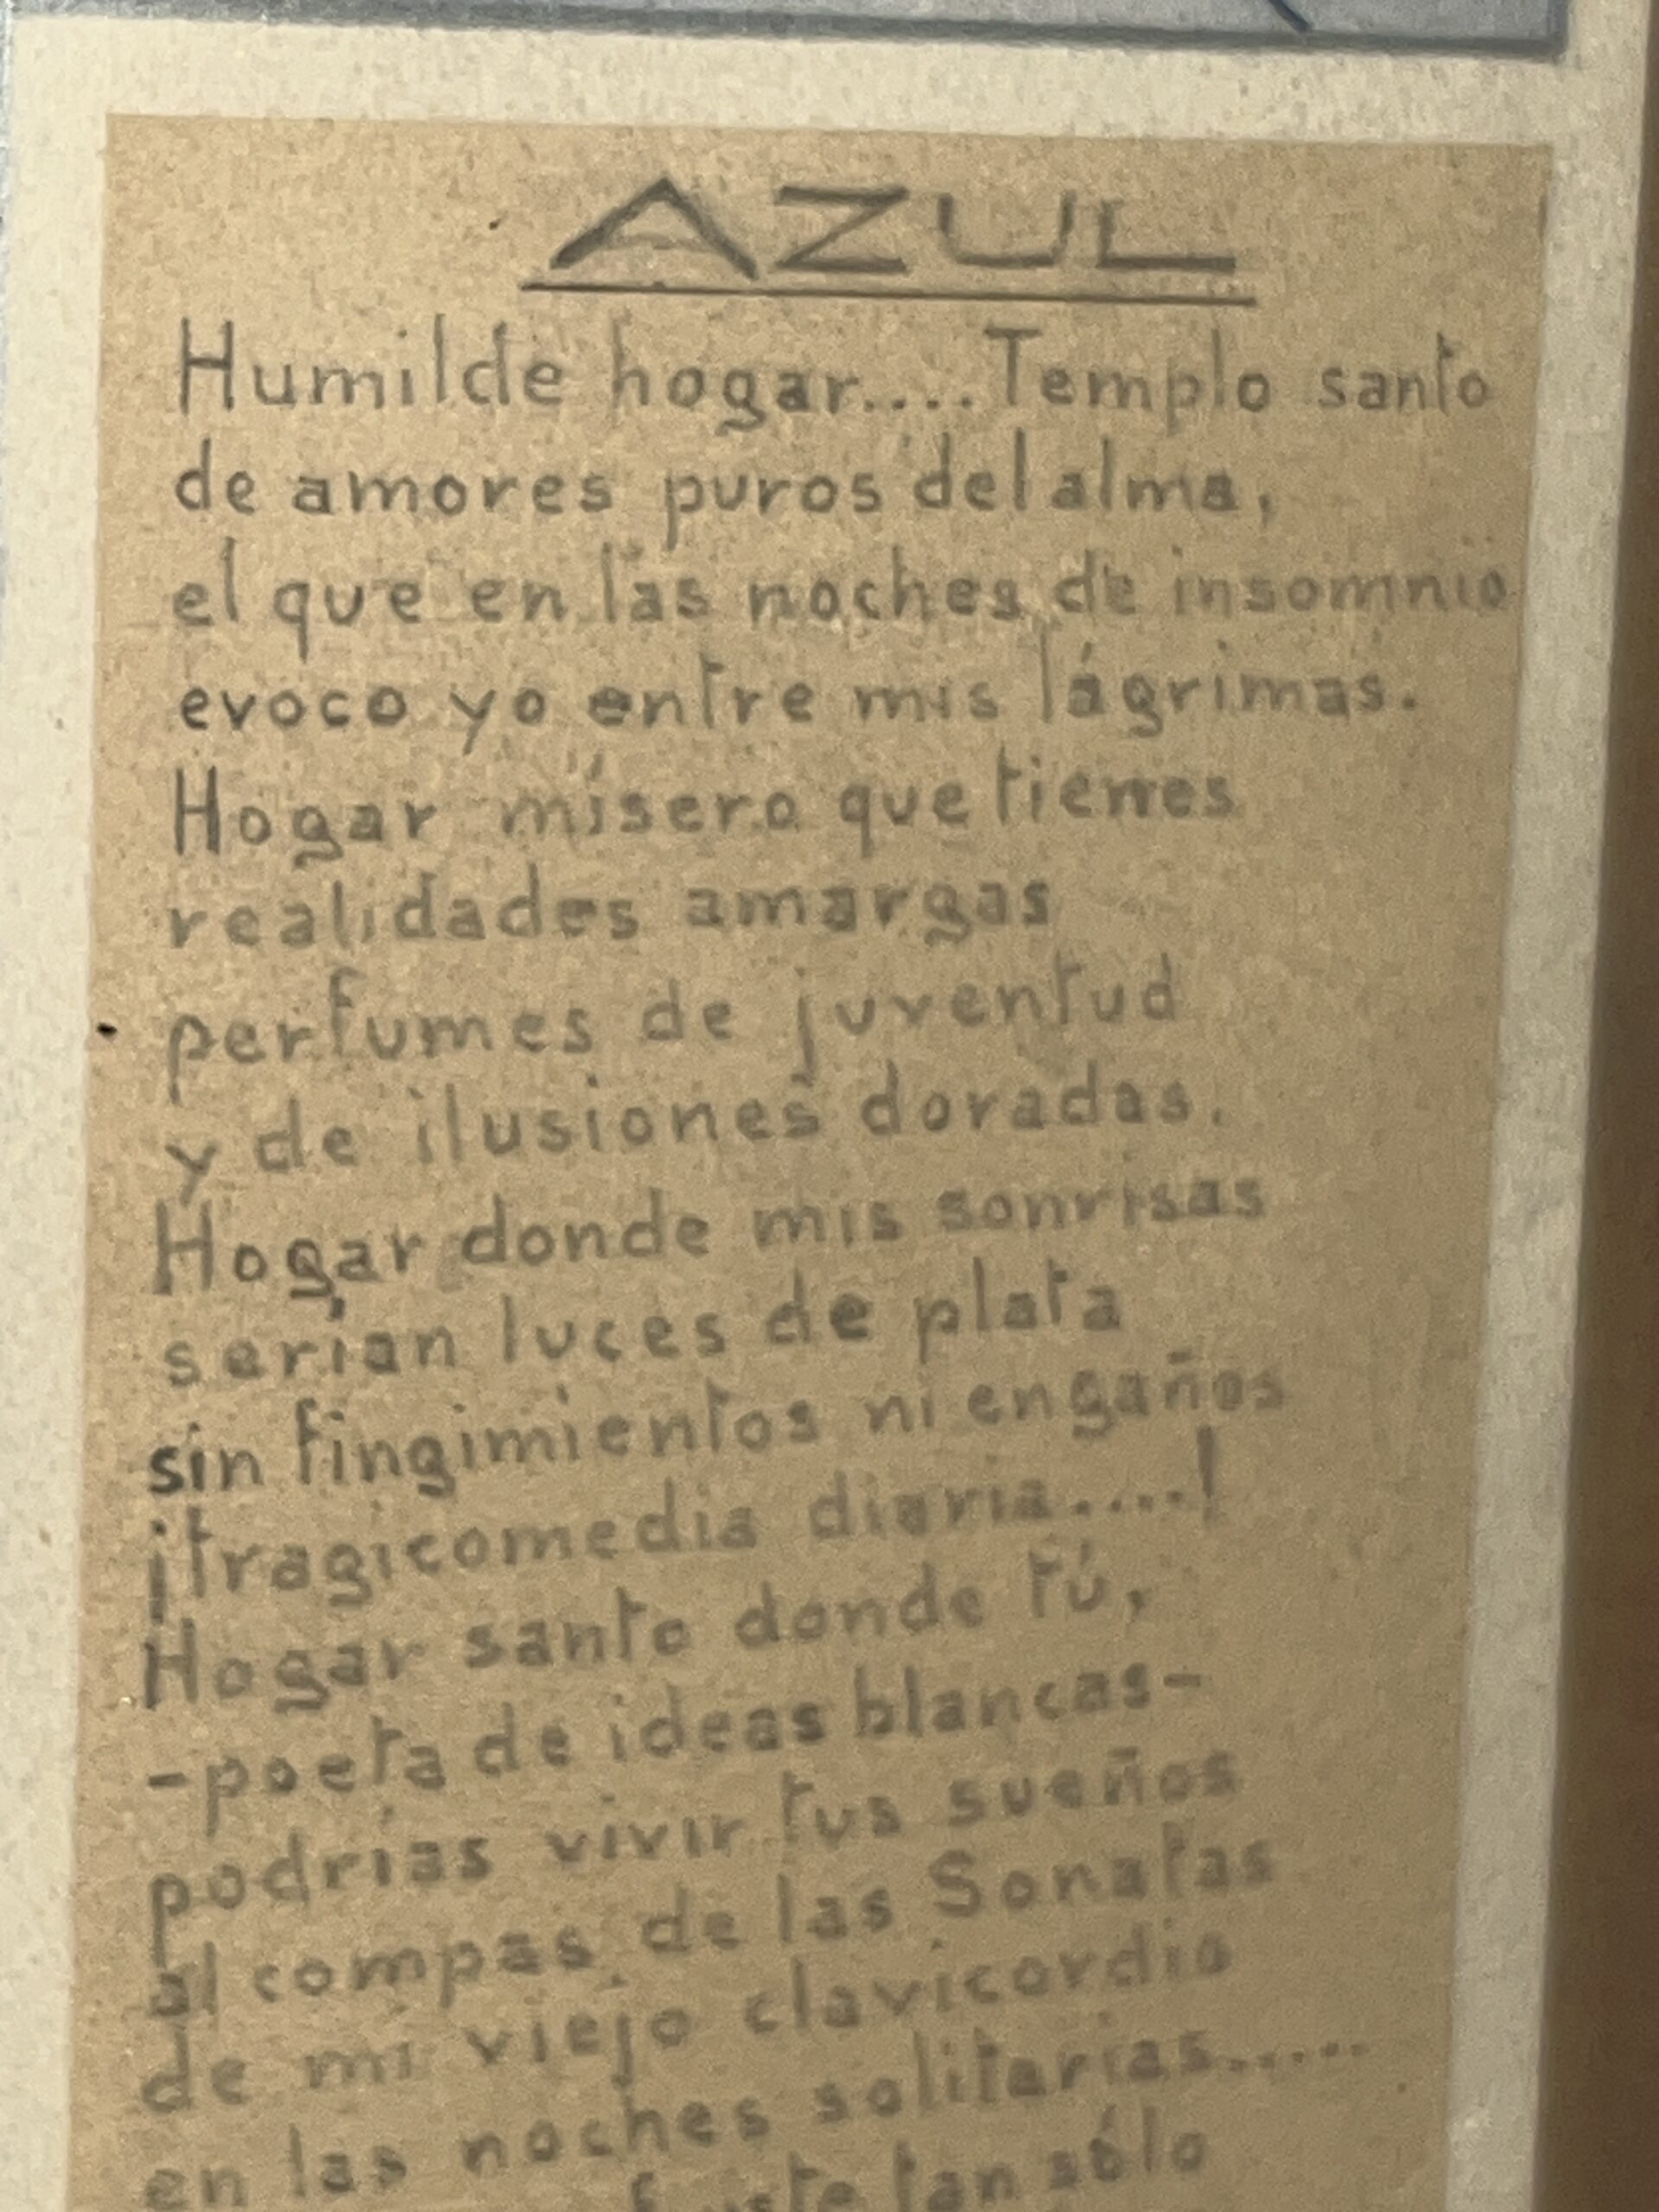 AZUL
Humilde hogar....Templo santo
de amores puros del alma,
el que en las noches de insomnio
evoco yo entre mis lágrimas.
Hogar mísero que tienes
realidades amargas
perfumes de juventud
y de ilusiones doradas.
Hogar donde mis sonrisas
serian luces de plata
sin fingimientos ni engaños
¡tragicomedia diaria....!
Hogar santo donde tú,
-poeta de ideas blancas-
podrias vivir tus sueños
al compas de las Sonatas
de mi viejo clavicordio
en las noches solitarias.....
fuiste tan sólo